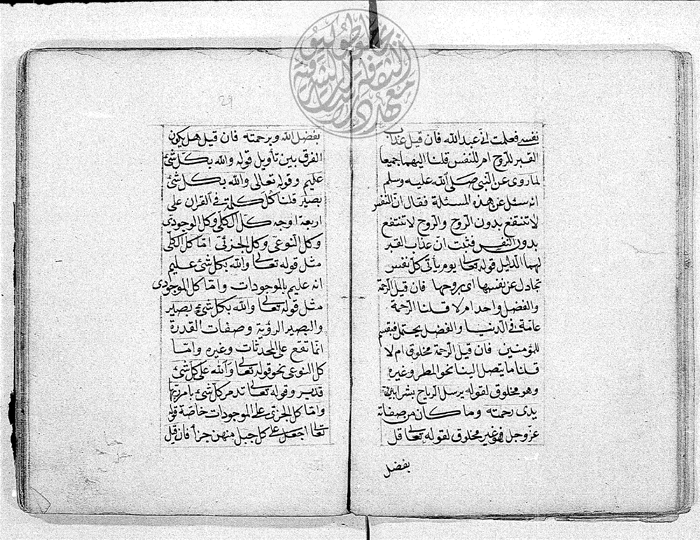 نفسه فعلمت انى عبد الله فان قيل عذاب
القبر للروح ام للنفس قلنا اليهما جميعا
لما روى عن النبى صلى الله عليه وسلم
انه سئل عن هذه المسئلة فقال ان النفس
لا تنتفع بدون الروح والروح لا تنتفع
بدون النفس فثبت ان عذاب القبر
لهما الدليل قوله تعالى يوم تأتى كل نفس
تجادل عن نفسها اى بروحها فان قيل الرحمة
والفضل واحد ام لا قلنا الرحمة
عامة فى الدنيا والفضل يحتمل
للمؤمنين فان قيل الرحمة مخلوق ام لا
قلنا ما يتصل الينا نحو المطر وغيره
وهو مخلوق لقوله يرسل الرياح بشرا بين
يدى رحمته وما كان من صفاته
عز وجل فهو غير مخلوق لقوله تعالى قل
بفضل
بفضل الله وبرحمته فان قيل هل يكون
الفرق بين تأويل قوله والله بكل شئ
عليم وقوله تعالى والله بكل شئ
بصير قلنا كل كلمة فى القران على
اربعة اوجه كل الكلى وكل الوجودى
وكل النوعى وكل الجزئى اما كل الكلى
مثل قوله تعالى والله بكل شئ عليم
انه عليم بالموجودات واما كل الموجودى
مثل قوله تعالى والله بكل شئ بصير
والبصير الرؤية وصفات القدرة
انما تقع على المحدثات وغيره واما
كل النوعى نحو قوله تعالى والله على كل شئ
قدير وقوله تعالى تدمر كل شئ بامر ربها
واما كل الجزئى على الموجودات خاصة قوله
تعالى اجعل على كل جبل منهن جزأ فان قيل